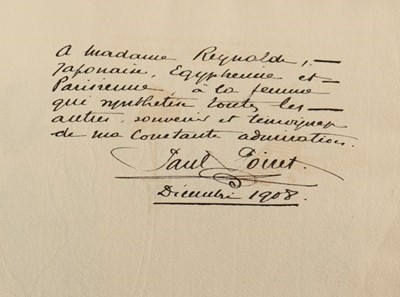 A Madame Reynolde, —
Japonaise, Egyptienne et —
Parisienne, à la femme
qui synthetise toutes les —
autres. souvenir et témoignage
de ma Constante admiration.
Paul Poiret.
Décembre 1908.